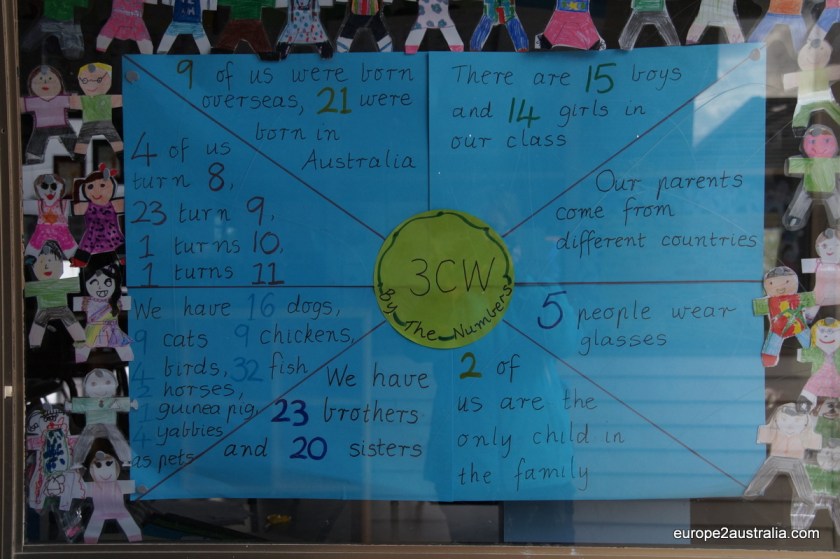 9 of us were born
overseas, 21 were
born in
Australia
There are 15 boys
and 14 girls in
our class
Our parents
come from
different countries
4 of us
turn 8,
23 turn 9,
1 turns 10,
1 turns 11
3CW
By The Numbers
We have 16 dogs,
9 cats 9 chickens,
4 birds, 32 fish
horses,
guinea pig,
4 yabbies
as pets
We have
23 brothers
and 20 sisters
5 people wear
glasses
2 of
us are the
only child in
the family
europe2australia.com